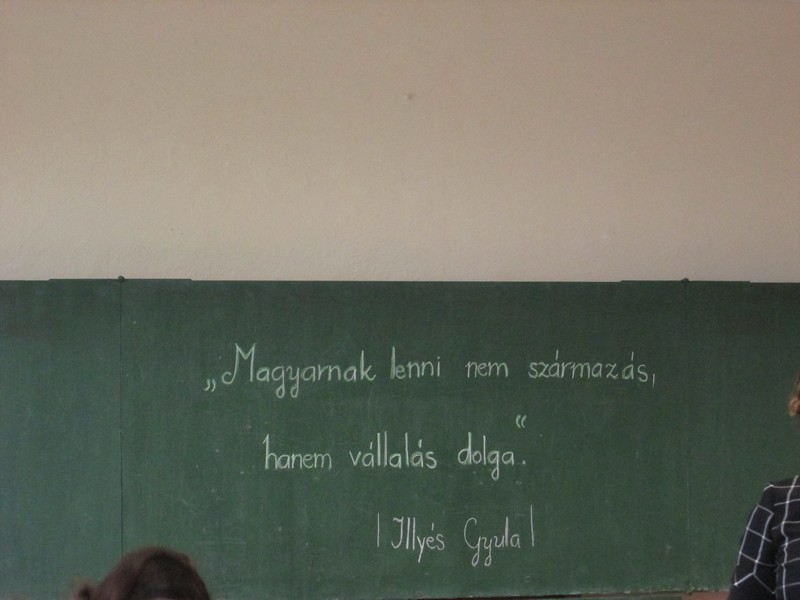 „Magyarnak lenni nem származás,
hanem vállalás dolga.“
|Illyés Gyula|